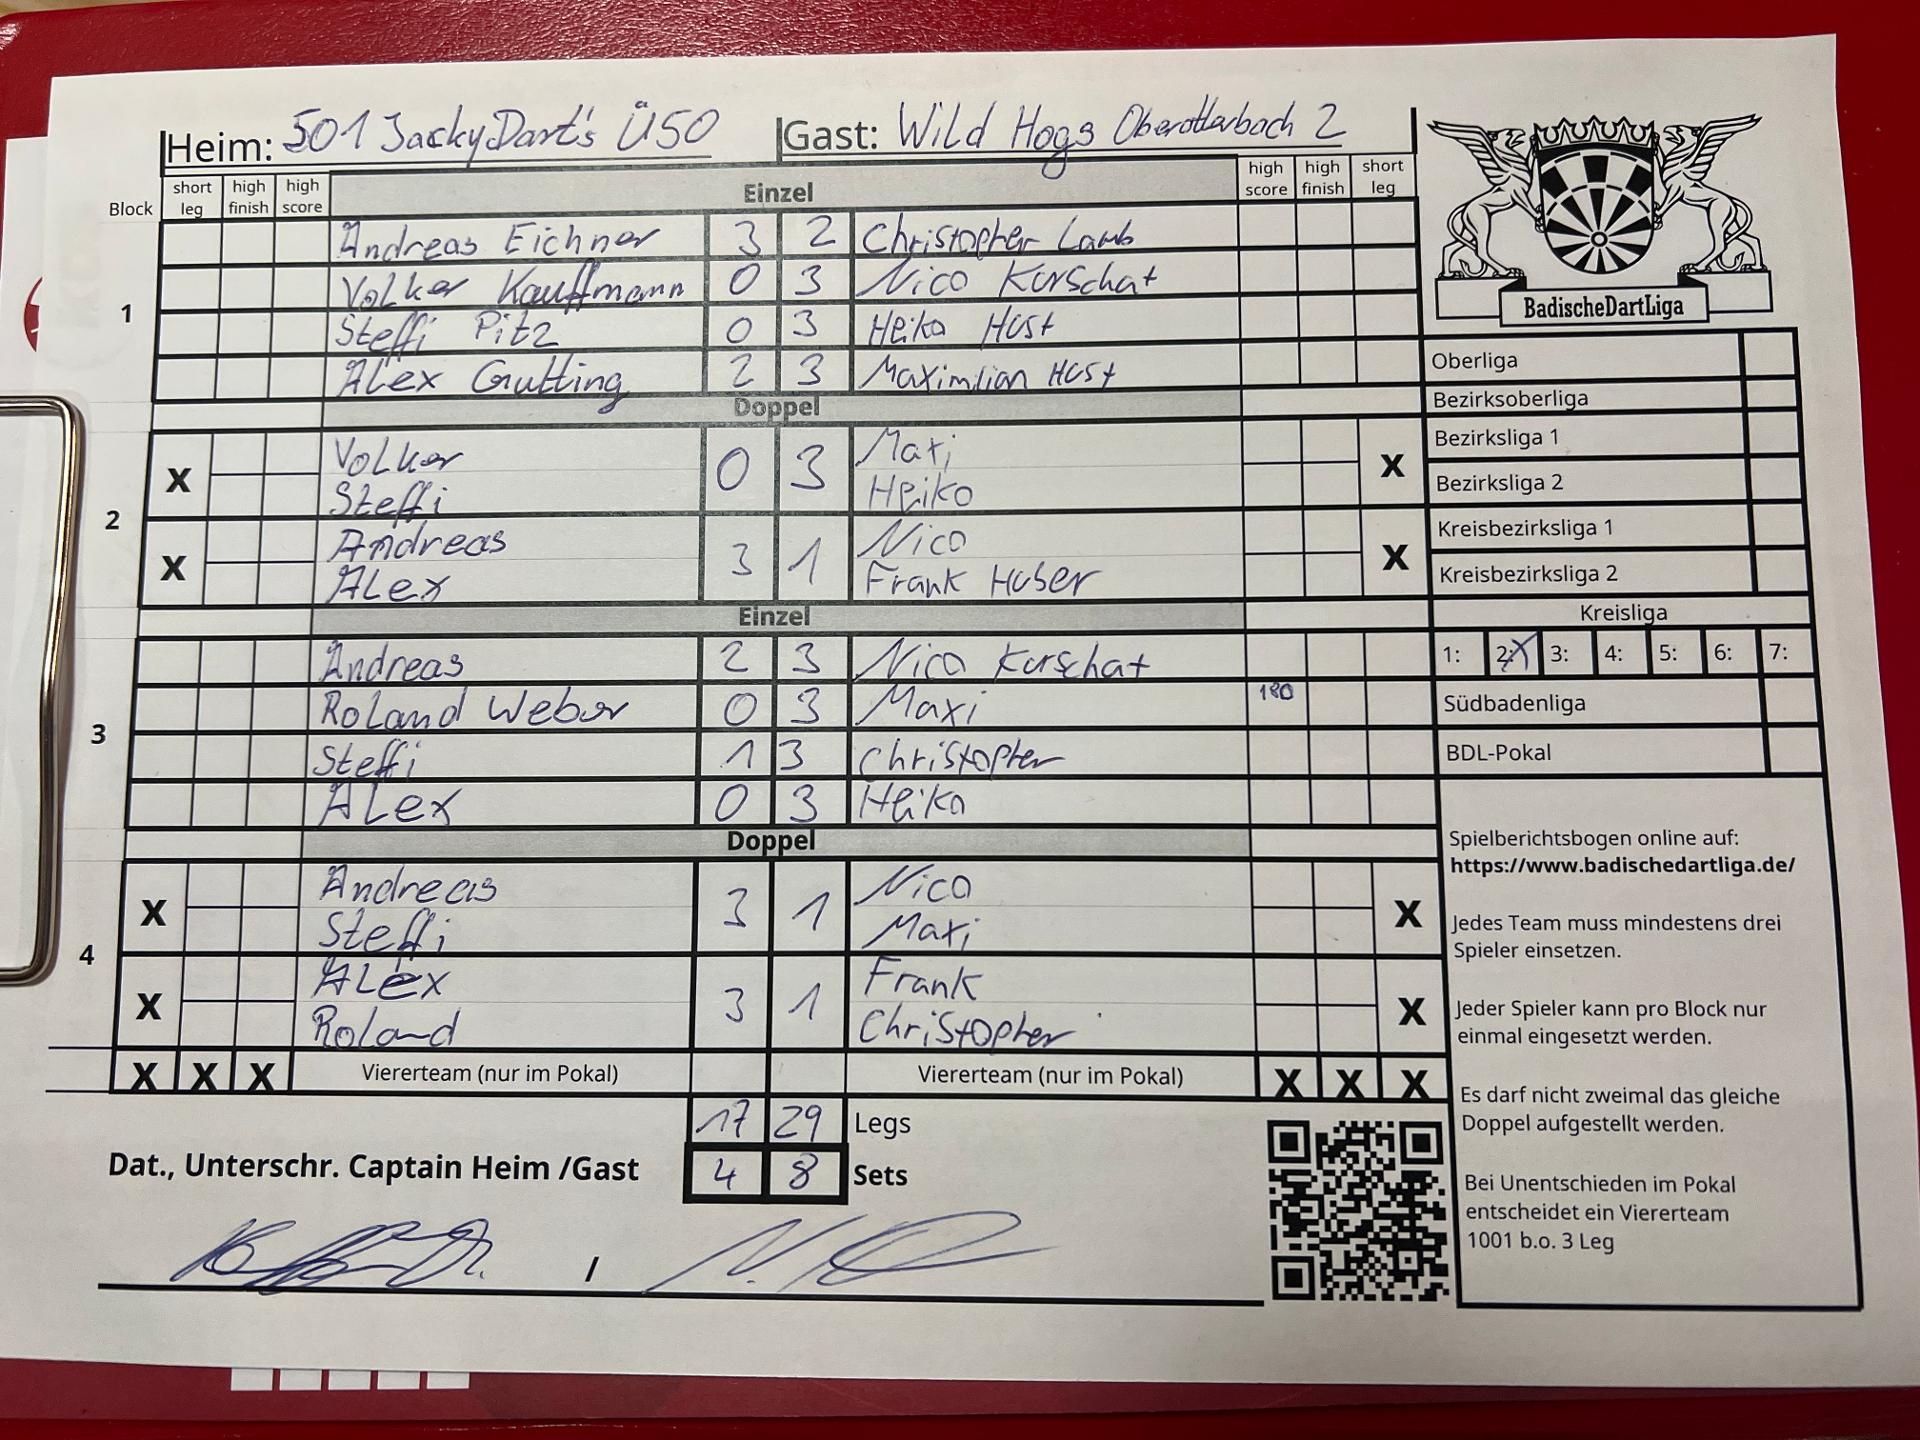 Heim: 501 JackyDart's Ü50 Gast: Wild Hogs Oberotterbach 2
Block short leg high finish high score Einzel high score high finish short leg
1
Andreas Eichner 3 2 Christopher Lamb
Volker Kauffmann 0 3 Nico Kurschat
Steffi Pitz 0 3 Heiko Hust
Alex Gutting 2 3 Maximilian Hust
Doppel
2
X Volker 0 3 Maxi X
Steffi Heiko
X Andreas 3 1 Nico X
Alex Frank Huber
Einzel
3
Andreas 2 3 Nico Kurschat
Roland Weber 0 3 Maxi 180
Steffi 1 3 Christopher
Alex 0 3 Heiko
Doppel
4
X Andreas 3 1 Nico X
Steffi Maxi
X Alex 3 1 Frank X
Roland Christopher
X X X Viererteam (nur im Pokal) Viererteam (nur im Pokal) X X X
17 29 Legs
Dat., Unterschr. Captain Heim /Gast 4 8 Sets
/
BadischeDartLiga
Oberliga
Bezirksoberliga
Bezirksliga 1
Bezirksliga 2
Kreisbezirksliga 1
Kreisbezirksliga 2
Kreisliga
1: 2: X 3: 4: 5: 6: 7:
Südbadenliga
BDL-Pokal
Spielberichtsbogen online auf:
https://www.badischedartliga.de/
Jedes Team muss mindestens drei
Spieler einsetzen.
Jeder Spieler kann pro Block nur
einmal eingesetzt werden.
Es darf nicht zweimal das gleiche
Doppel aufgestellt werden.
Bei Unentschieden im Pokal
entscheidet ein Viererteam
1001 b.o. 3 Leg